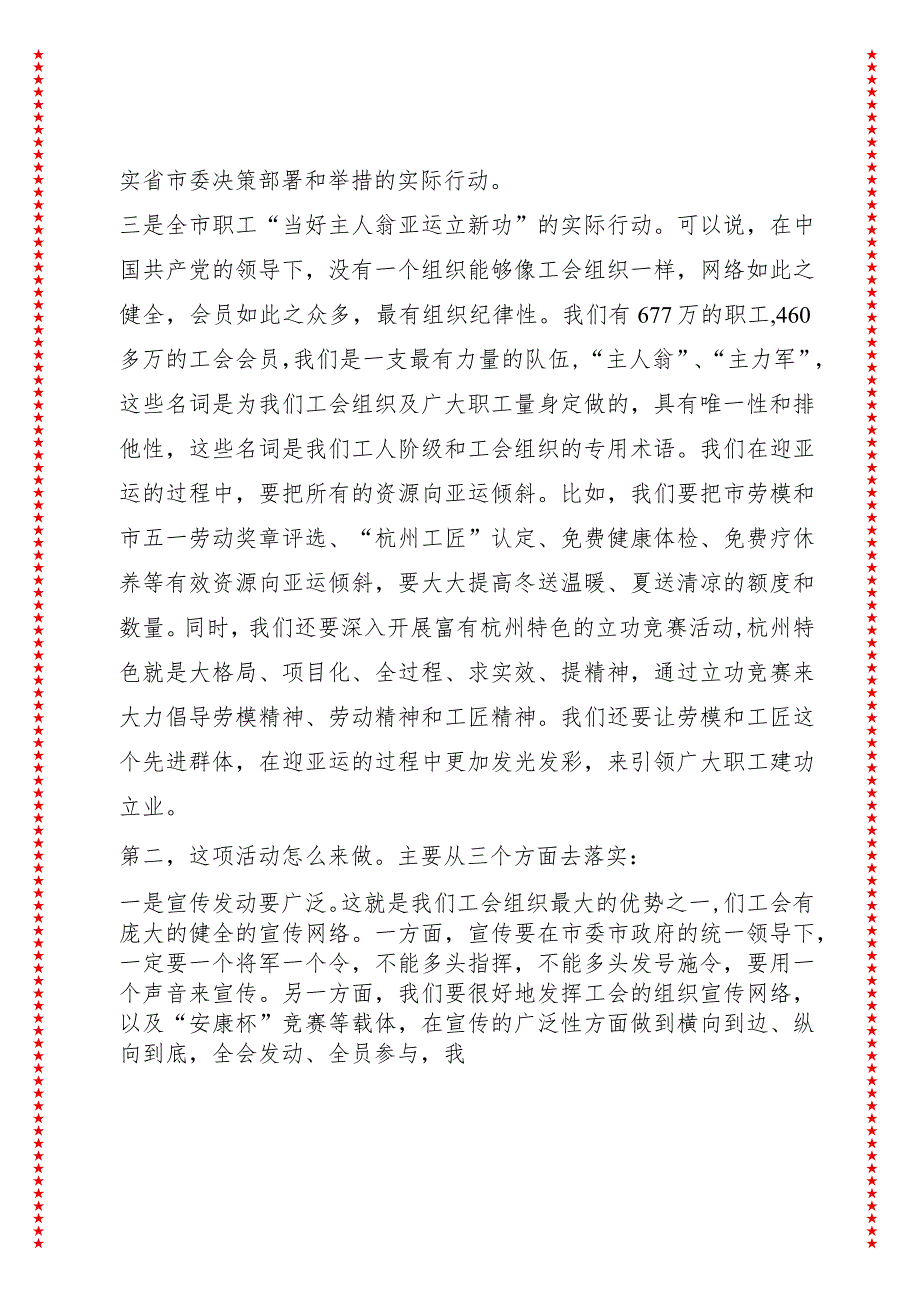 实省市委决策部署和举措的实际行动。
三是全市职工“当好主人翁亚运立新功”的实际行动。可以说，在中
国共产党的领导下，没有一个组织能够像工会组织一样，网络如此之
健全，会员如此之众多，最有组织纪律性。我们有677万的职工,460
多万的工会会员,我们是一支最有力量的队伍,“主人翁”、“主力军”,
这些名词是为我们工会组织及广大职工量身定做的，具有唯一性和排
他性，这些名词是我们工人阶级和工会组织的专用术语。我们在迎亚
运的过程中，要把所有的资源向亚运倾斜。比如，我们要把市劳模和
市五一劳动奖章评选、“杭州工匠”认定、免费健康体检、免费疗休
养等有效资源向亚运倾斜，要大大提高冬送温暖、夏送清凉的额度和
数量。同时,我们还要深入开展富有杭州特色的立功竞赛活动,杭州特
色就是大格局、项目化、全过程、求实效、提精神，通过立功竞赛来
大力倡导劳模精神、劳动精神和工匠精神。我们还要让劳模和工匠这
个先进群体，在迎亚运的过程中更加发光发彩，来引领广大职工建功
立业。
第二，这项活动怎么来做。主要从三个方面去落实：
一是宣传发动要广泛。这就是我们工会组织最大的优势之一,们工会有
庞大的健全的宣传网络。一方面，宣传要在市委市政府的统一领导下,
一定要一个将军一个令，不能多头指挥，不能多头发号施令，要用一
个声音来宣传。另一方面，我们要很好地发挥工会的组织宣传网络，
以及“安康杯”竞赛等载体，在宣传的广泛性方面做到横向到边、纵
向到底，全会发动、全员参与，我